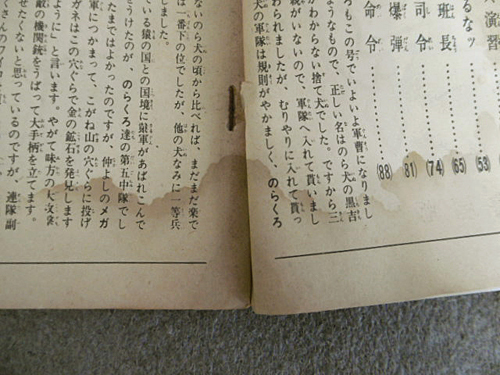 演習………(53)
るなッ………(65)
班長………(74)
司令………(81)
爆弾………(88)
命令
ろもこの号で、いよいよ軍曹になりまし
ようなもので、正しい名はのら犬の黒吉
かわからない捨て犬でした。ですから三
親がいないので、軍隊へ入れて貰いまし
わられましたが、むりやりに入れて貰っ
犬の軍隊は規則がやかましく、のらくろ
ないのら犬の頃から比べれば、まだまだ楽で
しました。
は一番下の位でしたが、他の犬なみに一等兵
ている猿の国との国境に敵軍があばれこんで
うけたのが、のらくろ達の第五中隊でし
たまではよかったのですが、仲よしのメガ
軍につかまって、こがね山の穴ぐらに投げ
ガネはこの穴ぐらで金の鉱石を発見します
ように」と言います。やがて味方の大攻撃
敵の機関銃をうばって大手柄を立てます。
せたくないと思っているのですが、連隊副